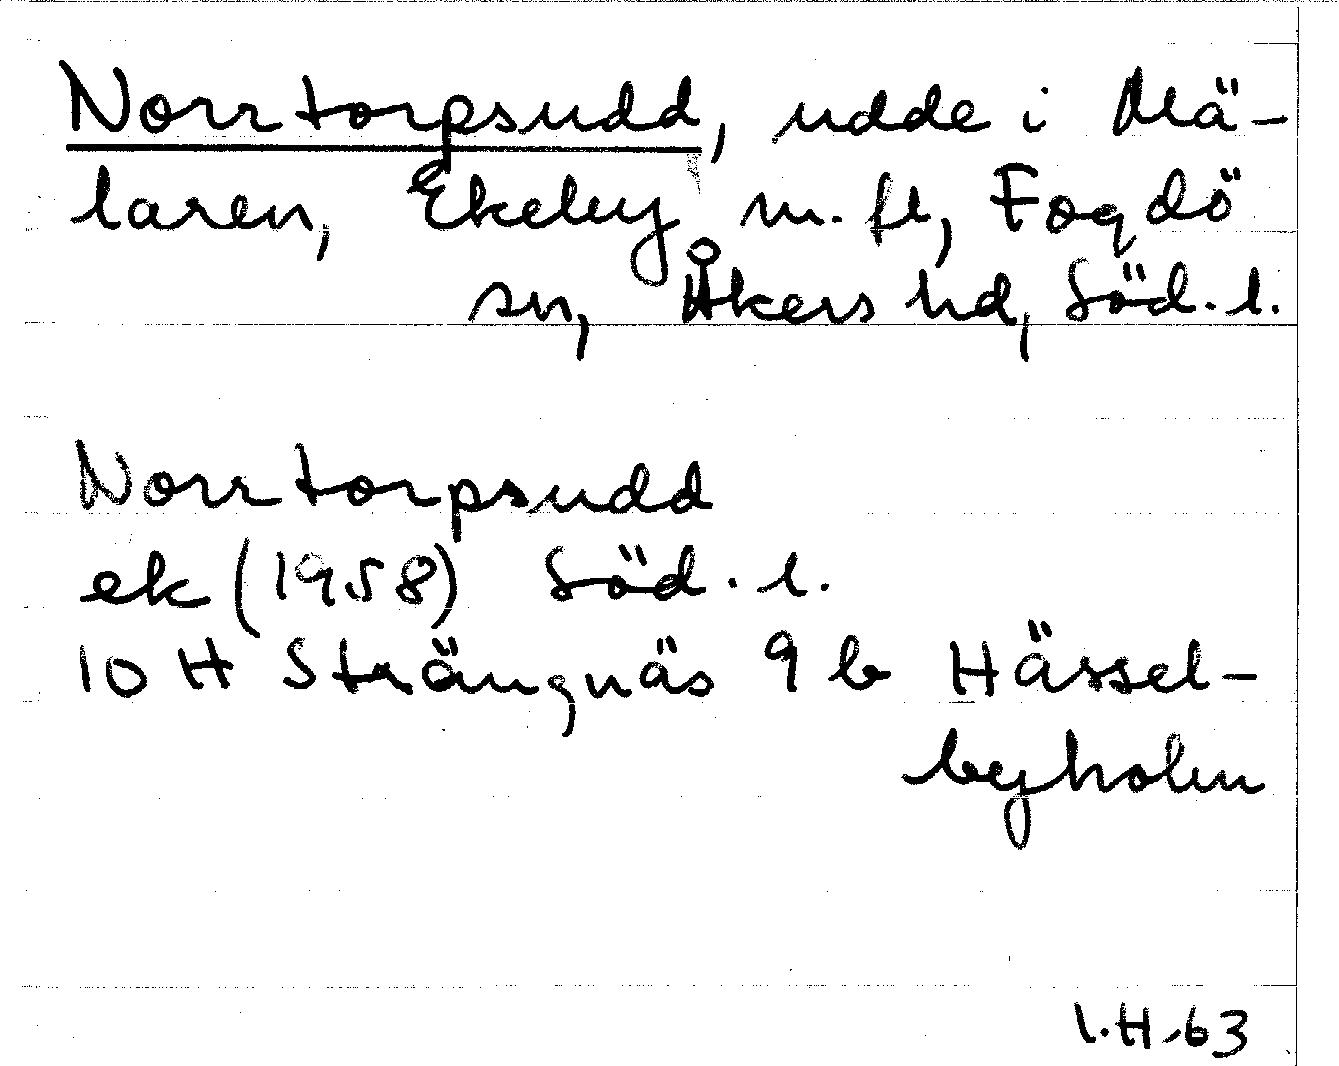 Norrtorpsudd, udde i Mä-
laren, Ekeby m. fl, Fogdö
sn, Åkers hd, Söd. l.
Norrtorpsudd
ek (1958) Söd. l.
10 H Strängnäs 9 b Hässel-
byholm
I.H.63